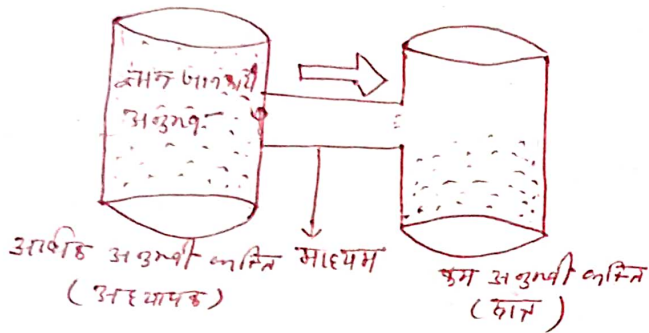 ज्ञान जानकारी
अनुभव
अधिक अनुभवी व्यक्ति
(अध्यापक)
माध्यम
कम अनुभवी व्यक्ति
(छात्र)